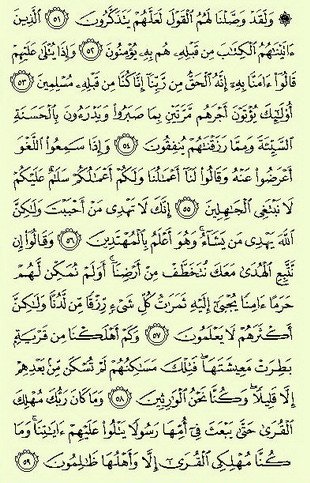 ۞ وَلَقَدْ وَصَّلْنَا لَهُمُ ٱلْقَوْلَ لَعَلَّهُمْ يَتَذَكَّرُونَ ٥١ ٱلَّذِينَ
ءَاتَيْنَٰهُمُ ٱلْكِتَٰبَ مِن قَبْلِهِۦ هُم بِهِۦ يُؤْمِنُونَ ٥٢ وَإِذَا يُتْلَىٰ عَلَيْهِمْ
قَالُوٓا۟ ءَامَنَّا بِهِۦٓ إِنَّهُ ٱلْحَقُّ مِن رَّبِّنَآ إِنَّا كُنَّا مِن قَبْلِهِۦ مُسْلِمِينَ ٥٣
أُو۟لَٰٓئِكَ يُؤْتَوْنَ أَجْرَهُم مَّرَّتَيْنِ بِمَا صَبَرُوا۟ وَيَدْرَءُونَ بِٱلْحَسَنَةِ
ٱلسَّيِّئَةَ وَمِمَّا رَزَقْنَٰهُمْ يُنفِقُونَ ٥٤ وَإِذَا سَمِعُوا۟ ٱللَّغْوَ
أَعْرَضُوا۟ عَنْهُ وَقَالُوا۟ لَنَآ أَعْمَٰلُنَا وَلَكُمْ أَعْمَٰلُكُمْ سَلَٰمٌ عَلَيْكُمْ
لَا نَبْتَغِى ٱلْجَٰهِلِينَ ٥٥ إِنَّكَ لَا تَهْدِى مَنْ أَحْبَبْتَ وَلَٰكِنَّ
ٱللَّهَ يَهْدِى مَن يَشَآءُ ۚ وَهُوَ أَعْلَمُ بِٱلْمُهْتَدِينَ ٥٦ وَقَالُوٓا۟ إِن
نَّتَّبِعِ ٱلْهُدَىٰ مَعَكَ نُتَخَطَّفْ مِنْ أَرْضِنَآ ۚ أَوَلَمْ نُمَكِّن لَّهُمْ
حَرَمًا ءَامِنًا يُجْبَىٰٓ إِلَيْهِ ثَمَرَٰتُ كُلِّ شَىْءٍ رِّزْقًا مِّن لَّدُنَّا وَلَٰكِنَّ
أَكْثَرَهُمْ لَا يَعْلَمُونَ ٥٧ وَكَمْ أَهْلَكْنَا مِن قَرْيَةٍۭ
بَطِرَتْ مَعِيشَتَهَا ۖ فَتِلْكَ مَسَٰكِنُهُمْ لَمْ تُسْكَن مِّنۢ بَعْدِهِمْ
إِلَّا قَلِيلًا ۖ وَكُنَّا نَحْنُ ٱلْوَٰرِثِينَ ٥٨ وَمَا كَانَ رَبُّكَ مُهْلِكَ
ٱلْقُرَىٰ حَتَّىٰ يَبْعَثَ فِىٓ أُمِّهَا رَسُولًا يَتْلُوا۟ عَلَيْهِمْ ءَايَٰتِنَا ۚ وَمَا
كُنَّا مُهْلِكِى ٱلْقُرَىٰٓ إِلَّا وَأَهْلُهَا ظَٰلِمُونَ ٥٩